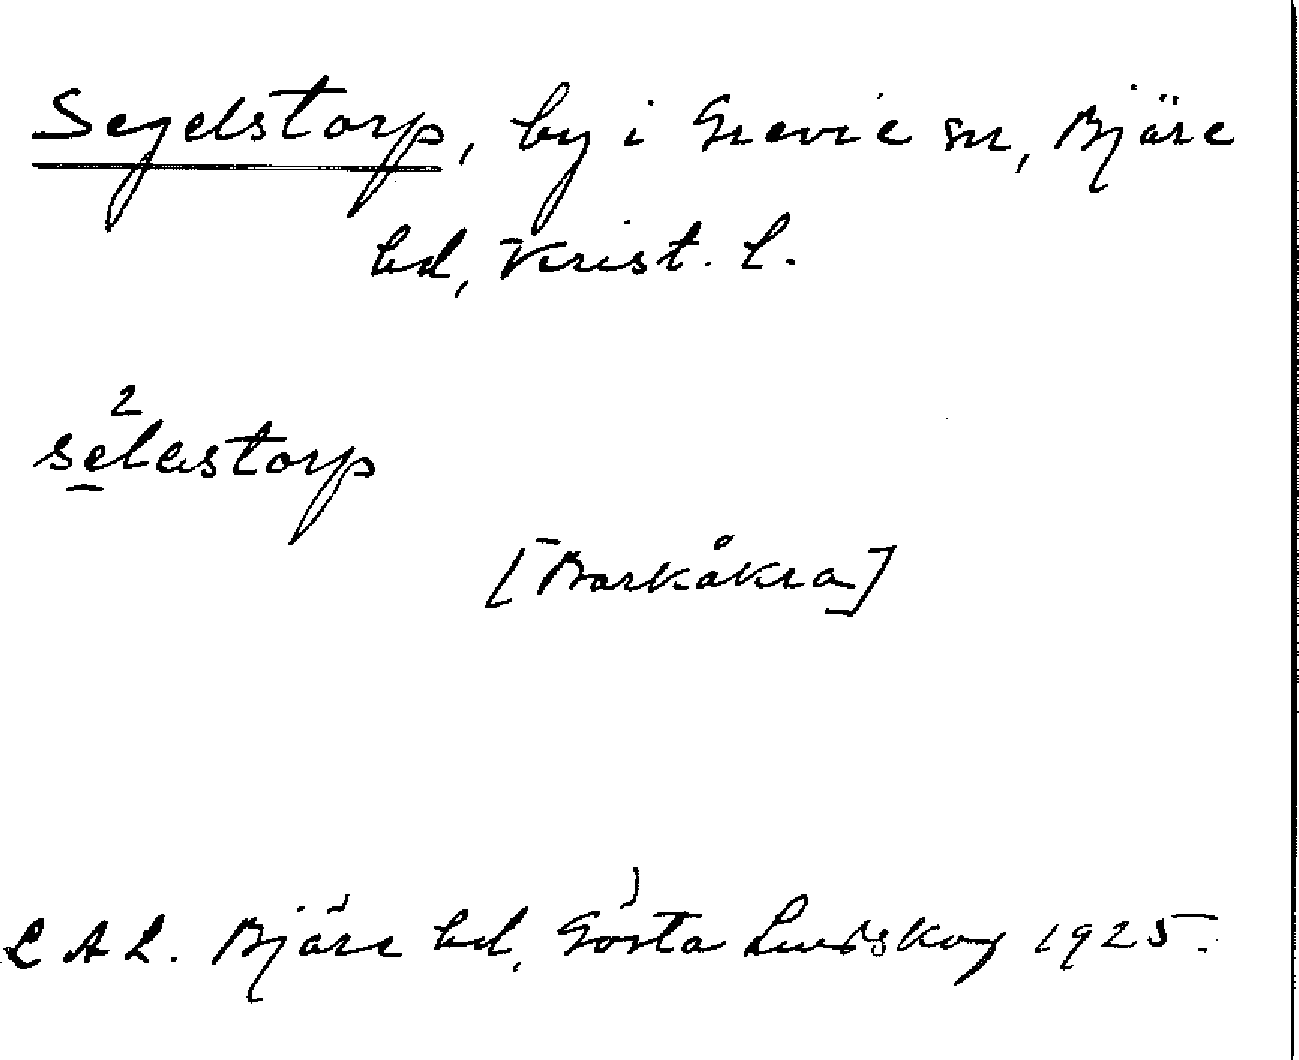 Segelstorp, by i Grevie sn, Bjäre
hd, Krist. l.
2
selastorp
[Barkåkra]
L A L. Bjäre hd, Gösta Lindskog 1925.